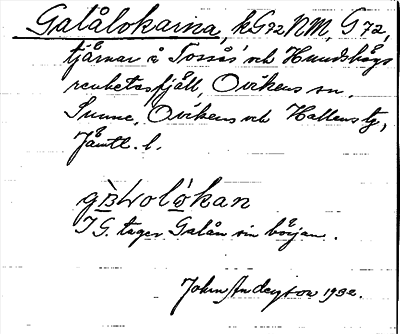 Galålokarna, kG72NM, G72,
tjärnar å Tossås' och Hundshögs
renbetesfjäll, Ovikens sn.
Sunne, Ovikens och Hallens tg,
Jämtl. l.
I G. tager Galån sin början.
John Anderson 1932.